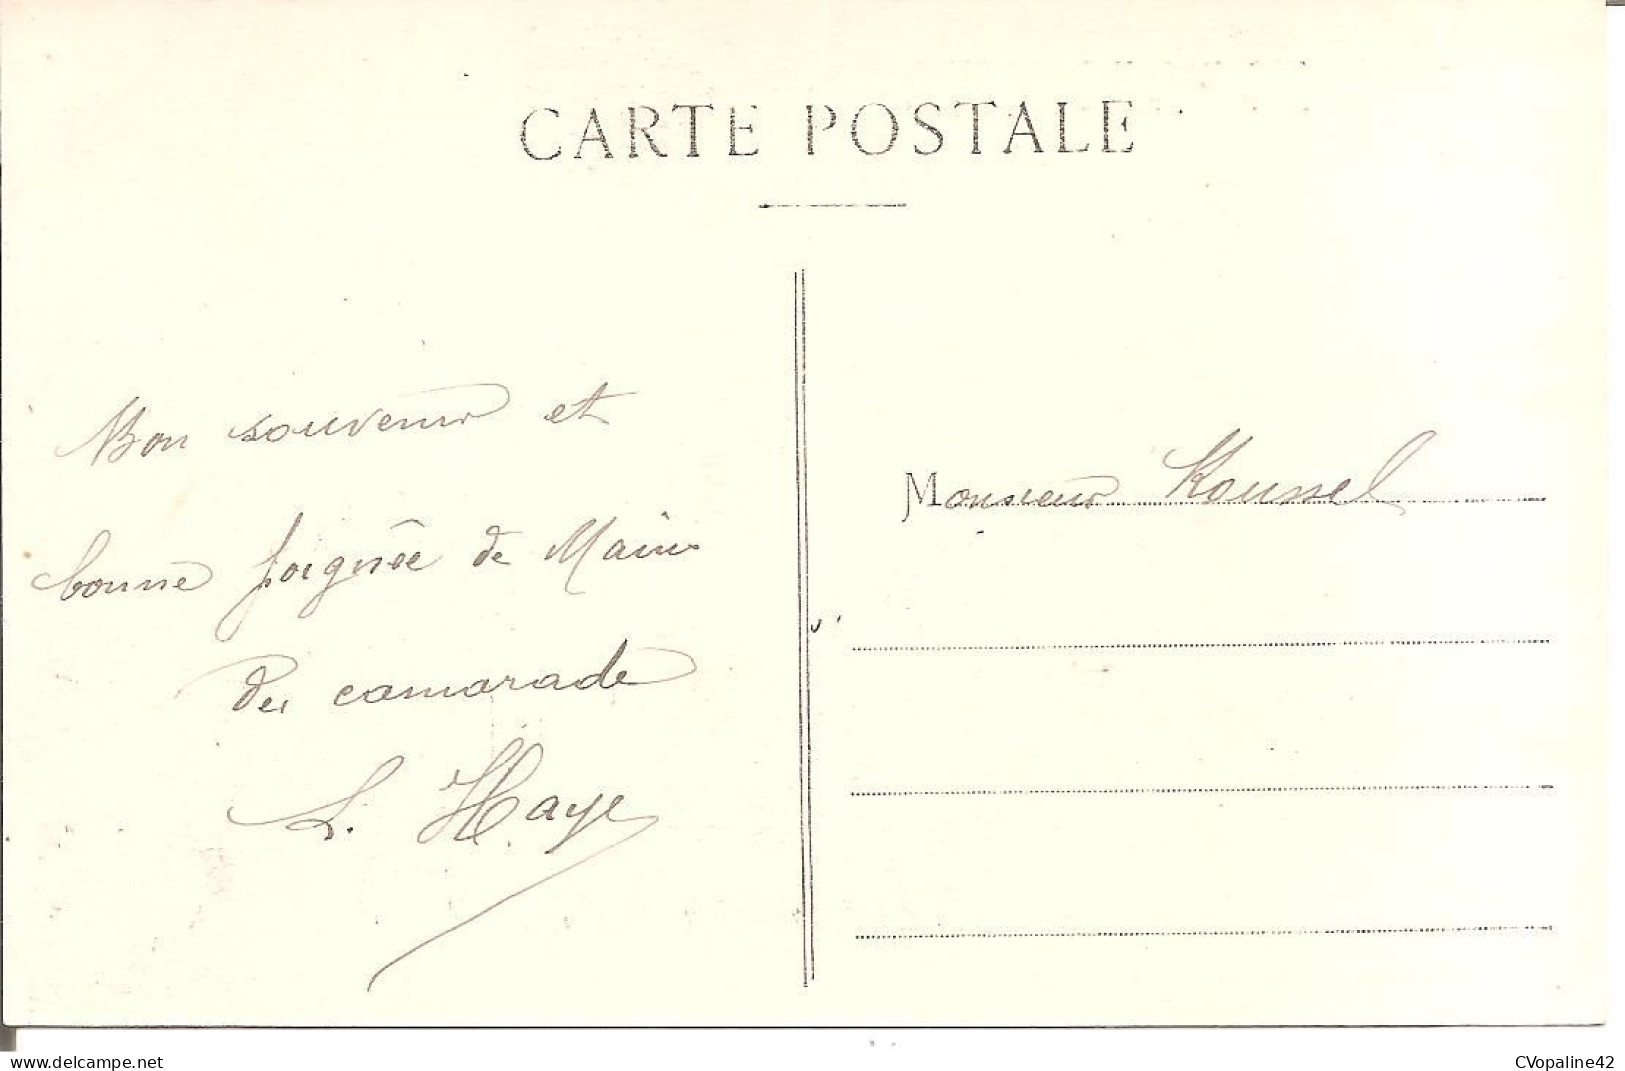 CARTE POSTALE
Bon souvenir et
bonne poignée de Mains
du camarade
L. Haye
Monsieur Roussel
www.delcampe.net
CVopaline42